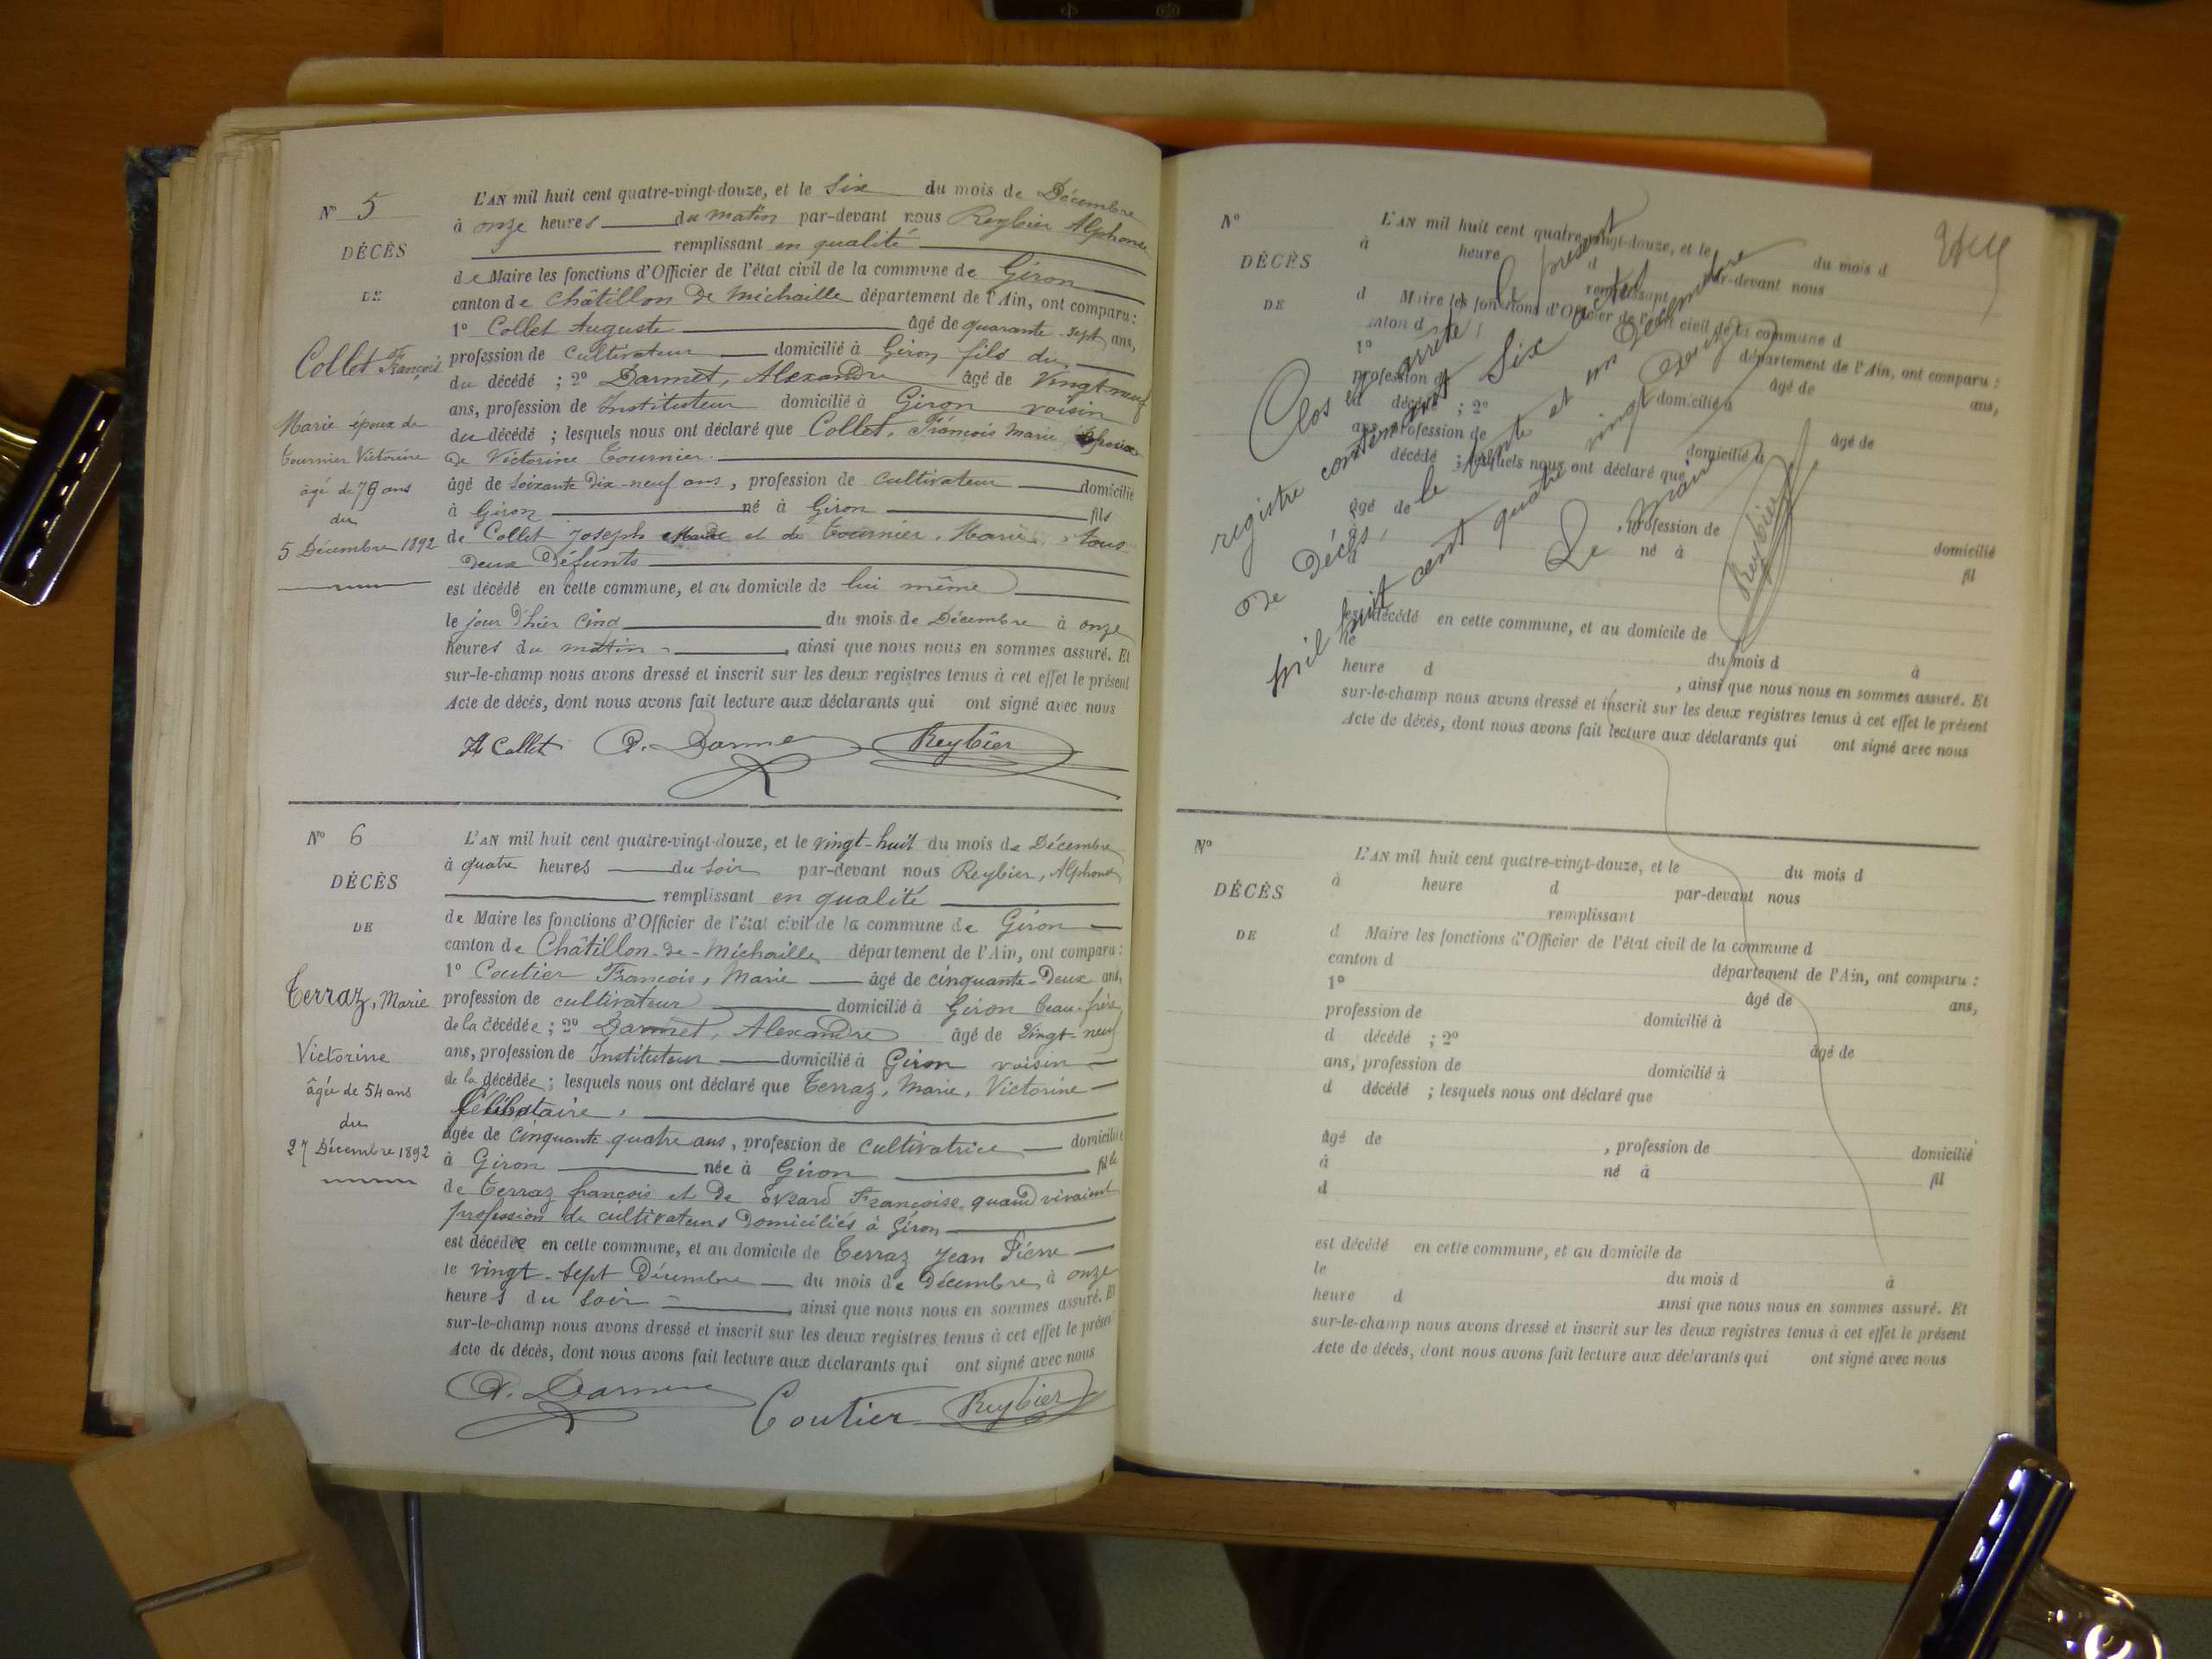 N° 5
DÉCÈS
DE
Collet François
Marie époux de
Tournier Victorine
âgé de 79 ans
du
5 Décembre 1892
L'AN mil huit cent quatre-vingt-douze, et le Six du mois de Décembre
à onze heures du matin par-devant nous Reybier Alphonse
remplissant en qualité
de Maire les fonctions d'Officier de l'état civil de la commune de Giron
canton de Châtillon de Michaille département de l'Ain, ont comparu :
1° Collet Auguste âgé de quarante-sept ans,
profession de cultivateur domicilié à Giron fils du
du décédé ; 2° Darmet, Alexandre âgé de vingt-neuf
ans, profession de Instituteur domicilié à Giron voisin
du décédé ; lesquels nous ont déclaré que Collet, François Marie époux
de Victorine Tournier.
âgé de soixante dix-neuf ans, profession de cultivateur domicilié
à Giron né à Giron fils
de Collet Joseph et de Tournier, Marie, tous
deux défunts
est décédé en cette commune, et au domicile de lui même
le jour d'hier cinq du mois de Décembre à onze
heures du matin, ainsi que nous nous en sommes assuré. Et
sur-le-champ nous avons dressé et inscrit sur les deux registres tenus à cet effet le présent
Acte de décès, dont nous avons fait lecture aux déclarants qui ont signé avec nous
A Collet A. Darmet Reybier
N° 6
DÉCÈS
DE
Terraz, Marie
Victorine
âgée de 54 ans
du
27 Décembre 1892
L'AN mil huit cent quatre-vingt-douze, et le vingt-huit du mois de Décembre
à quatre heures du soir par-devant nous Reybier, Alphonse
remplissant en qualité
de Maire les fonctions d'Officier de l'état civil de la commune de Giron
canton de Châtillon-de-Michaille département de l'Ain, ont comparu :
1° Coutier François, Marie âgé de cinquante-deux ans,
profession de cultivateur domicilié à Giron beau-frère
de la décédée ; 2° Darmet, Alexandre âgé de vingt-neuf
ans, profession de Instituteur domicilié à Giron voisin
de la décédée ; lesquels nous ont déclaré que Terraz, Marie, Victorine
Célibataire,
âgée de cinquante quatre ans, profession de cultivatrice domiciliée
à Giron née à Giron fille
de Terraz françois et de Françoise quand vivaient
profession de cultivateurs domiciliés à Giron
est décédée en cette commune, et au domicile de Terraz Jean Pierre
le vingt-sept Décembre du mois de Décembre à onze
heures du soir, ainsi que nous nous en sommes assuré. Et
sur-le-champ nous avons dressé et inscrit sur les deux registres tenus à cet effet le présent
Acte de décès, dont nous avons fait lecture aux déclarants qui ont signé avec nous
A. Darmet Coutier Reybier
N°
DÉCÈS
DE
L'AN mil huit cent quatre-vingt-douze, et le du mois d
à heure d par-devant nous
remplissant
d Maire les fonctions d'Officier de l'état civil de la commune d
canton d département de l'Ain, ont comparu :
1° âgé de ans,
profession de domicilié à
d décédé ; 2° âgé de
ans, profession de domicilié à
d décédé ; lesquels nous ont déclaré que
âgé de , profession de domicilié
à né à fil
d
est décédé en cette commune, et au domicile de
le du mois d à
heure d , ainsi que nous nous en sommes assuré. Et
sur-le-champ nous avons dressé et inscrit sur les deux registres tenus à cet effet le présent
Acte de décès, dont nous avons fait lecture aux déclarants qui ont signé avec nous
Clos et arrêté le présent
registre contenant Six actes
de Décès, le trente et un Décembre
mil huit cent quatre vingt Douze
Le Maire
Reybier
N°
DÉCÈS
DE
L'AN mil huit cent quatre-vingt-douze, et le du mois d
à heure d par-devant nous
remplissant
d Maire les fonctions d'Officier de l'état civil de la commune d
canton d département de l'Ain, ont comparu :
1° âgé de ans,
profession de domicilié à
d décédé ; 2° âgé de
ans, profession de domicilié à
d décédé ; lesquels nous ont déclaré que
âgé de , profession de domicilié
à né à fil
d
est décédé en cette commune, et au domicile de
le du mois d à
heure d ainsi que nous nous en sommes assuré. Et
sur-le-champ nous avons dressé et inscrit sur les deux registres tenus à cet effet le présent
Acte de décès, dont nous avons fait lecture aux déclarants qui ont signé avec nous